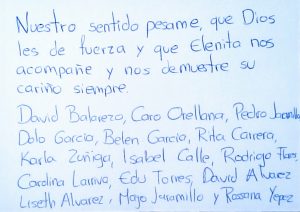 Nuestro sentido pesame, que Dios
les de fuerza y que Elenita nos
acompañe y nos demuestre su
cariño siempre.
David Balarezo, Caro Orellana, Pedro Jaramillo
Dolo Garcia, Belen Garcia, Rita Carrera,
Karla Zuñiga, Isabel Calle, Rodrigo Flores,
Carolina Larriva, Edu Torres, David Alvarez
Liseth Alvarez, Mayo Jaramillo y Rossana Yepez